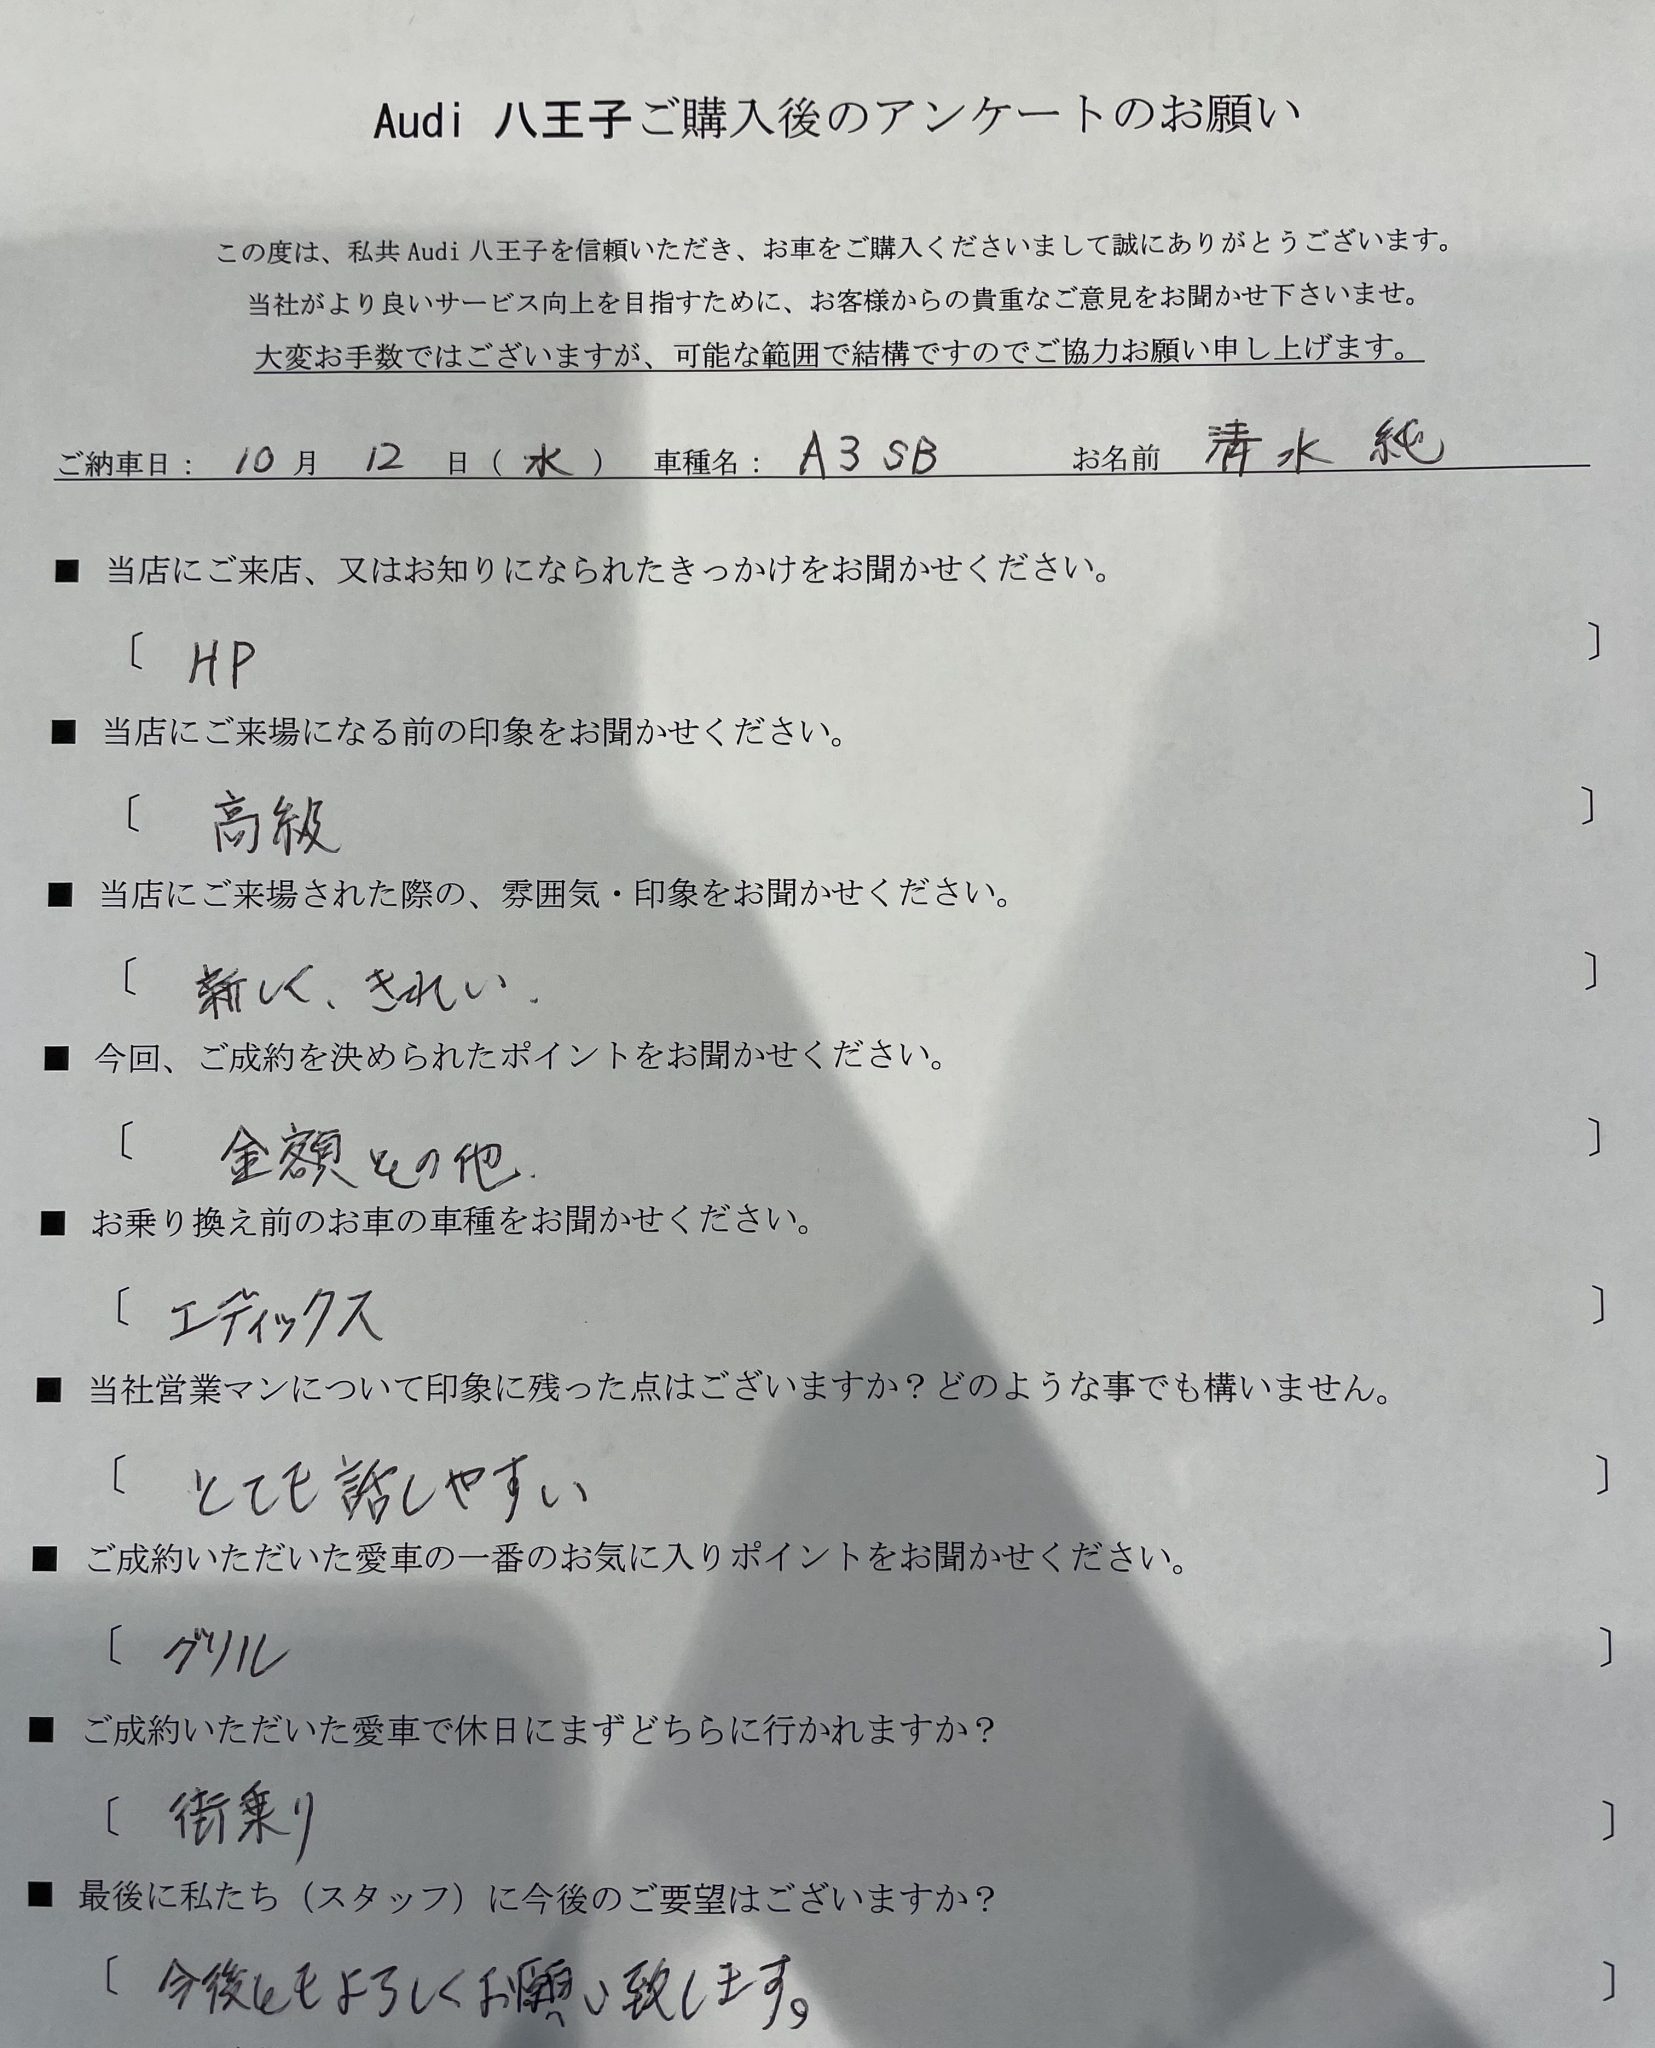 Audi 八王子ご購入後のアンケートのお願い
この度は、私共Audi八王子を信頼いただき、お車をご購入くださいまして誠にありがとうございます。
当社がより良いサービス向上を目指すために、お客様からの貴重なご意見をお聞かせ下さいませ。
大変お手数ではございますが、可能な範囲で結構ですのでご協力お願い申し上げます。
ご納車日： 10月 12 日（ 水 ） 車種名： A3 SB お名前 清水 純
■ 当店にご来店、又はお知りになられたきっかけをお聞かせください。
〔 HP 〕
■ 当店にご来場になる前の印象をお聞かせください。
〔 高級 〕
■ 当店にご来場された際の、雰囲気・印象をお聞かせください。
〔 新しく、きれい. 〕
■ 今回、ご成約を決められたポイントをお聞かせください。
〔 金額その他. 〕
■ お乗り換え前のお車の車種をお聞かせください。
〔 エディックス 〕
■ 当社営業マンについて印象に残った点はございますか？どのような事でも構いません。
〔 とても話しやすい 〕
■ ご成約いただいた愛車の一番のお気に入りポイントをお聞かせください。
〔 グリル 〕
■ ご成約いただいた愛車で休日にまずどちらに行かれますか？
〔 街乗り 〕
■ 最後に私たち（スタッフ）に今後のご要望はございますか？
〔 今後ともよろしくお願い致します。 〕